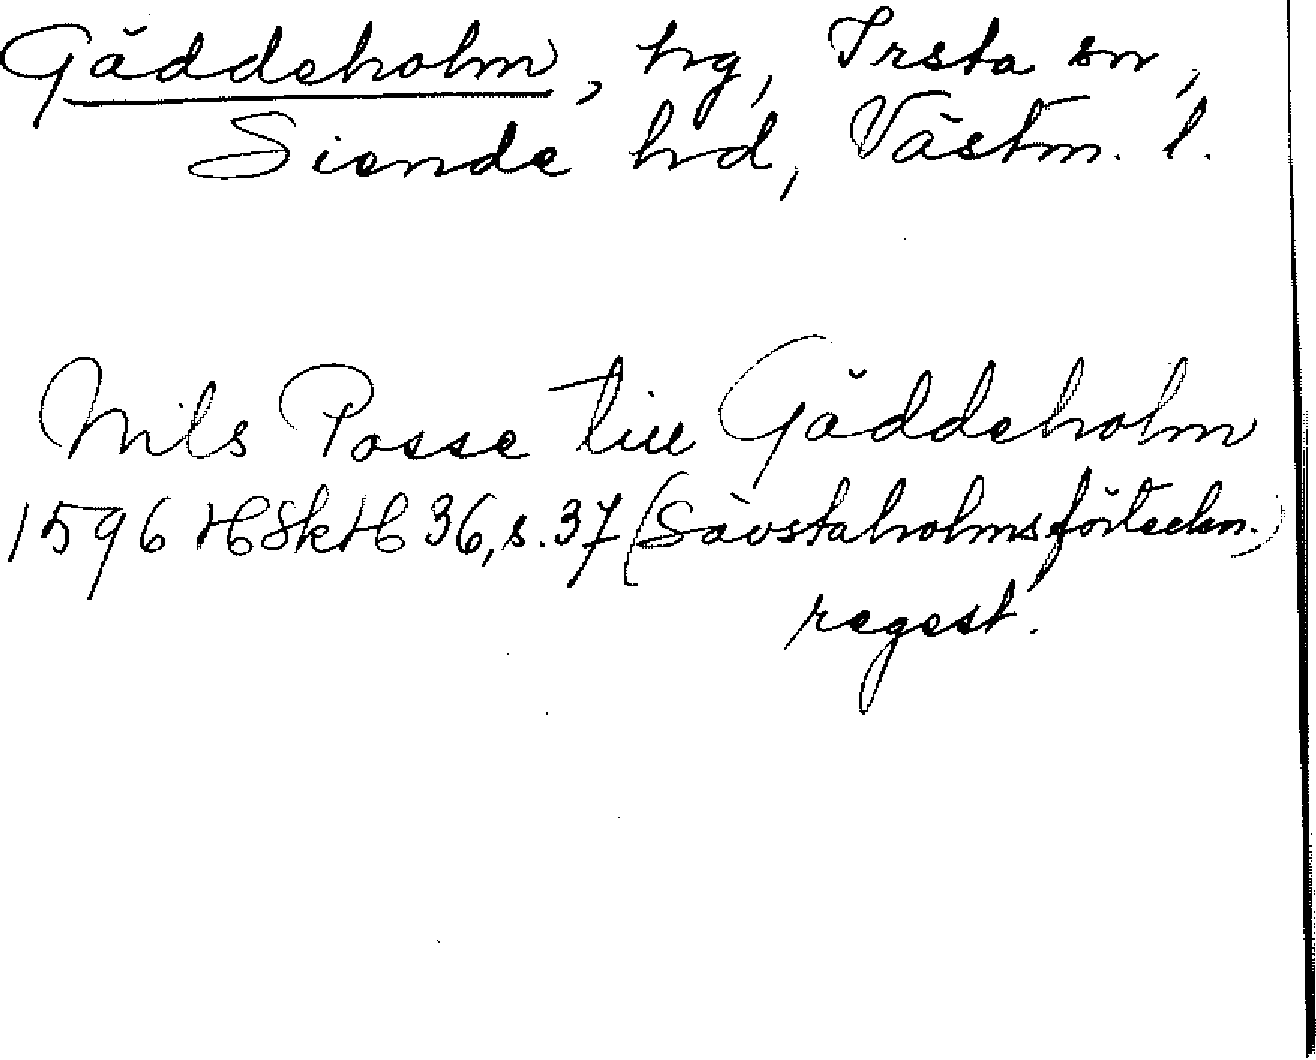 Gäddeholm, hg, Irsta sn,
Siende hd, Västm. l.
Nils Posse till Gäddeholm
1596 HSkH 36, s. 37 (Sävstaholmsförteckn.)
regest.